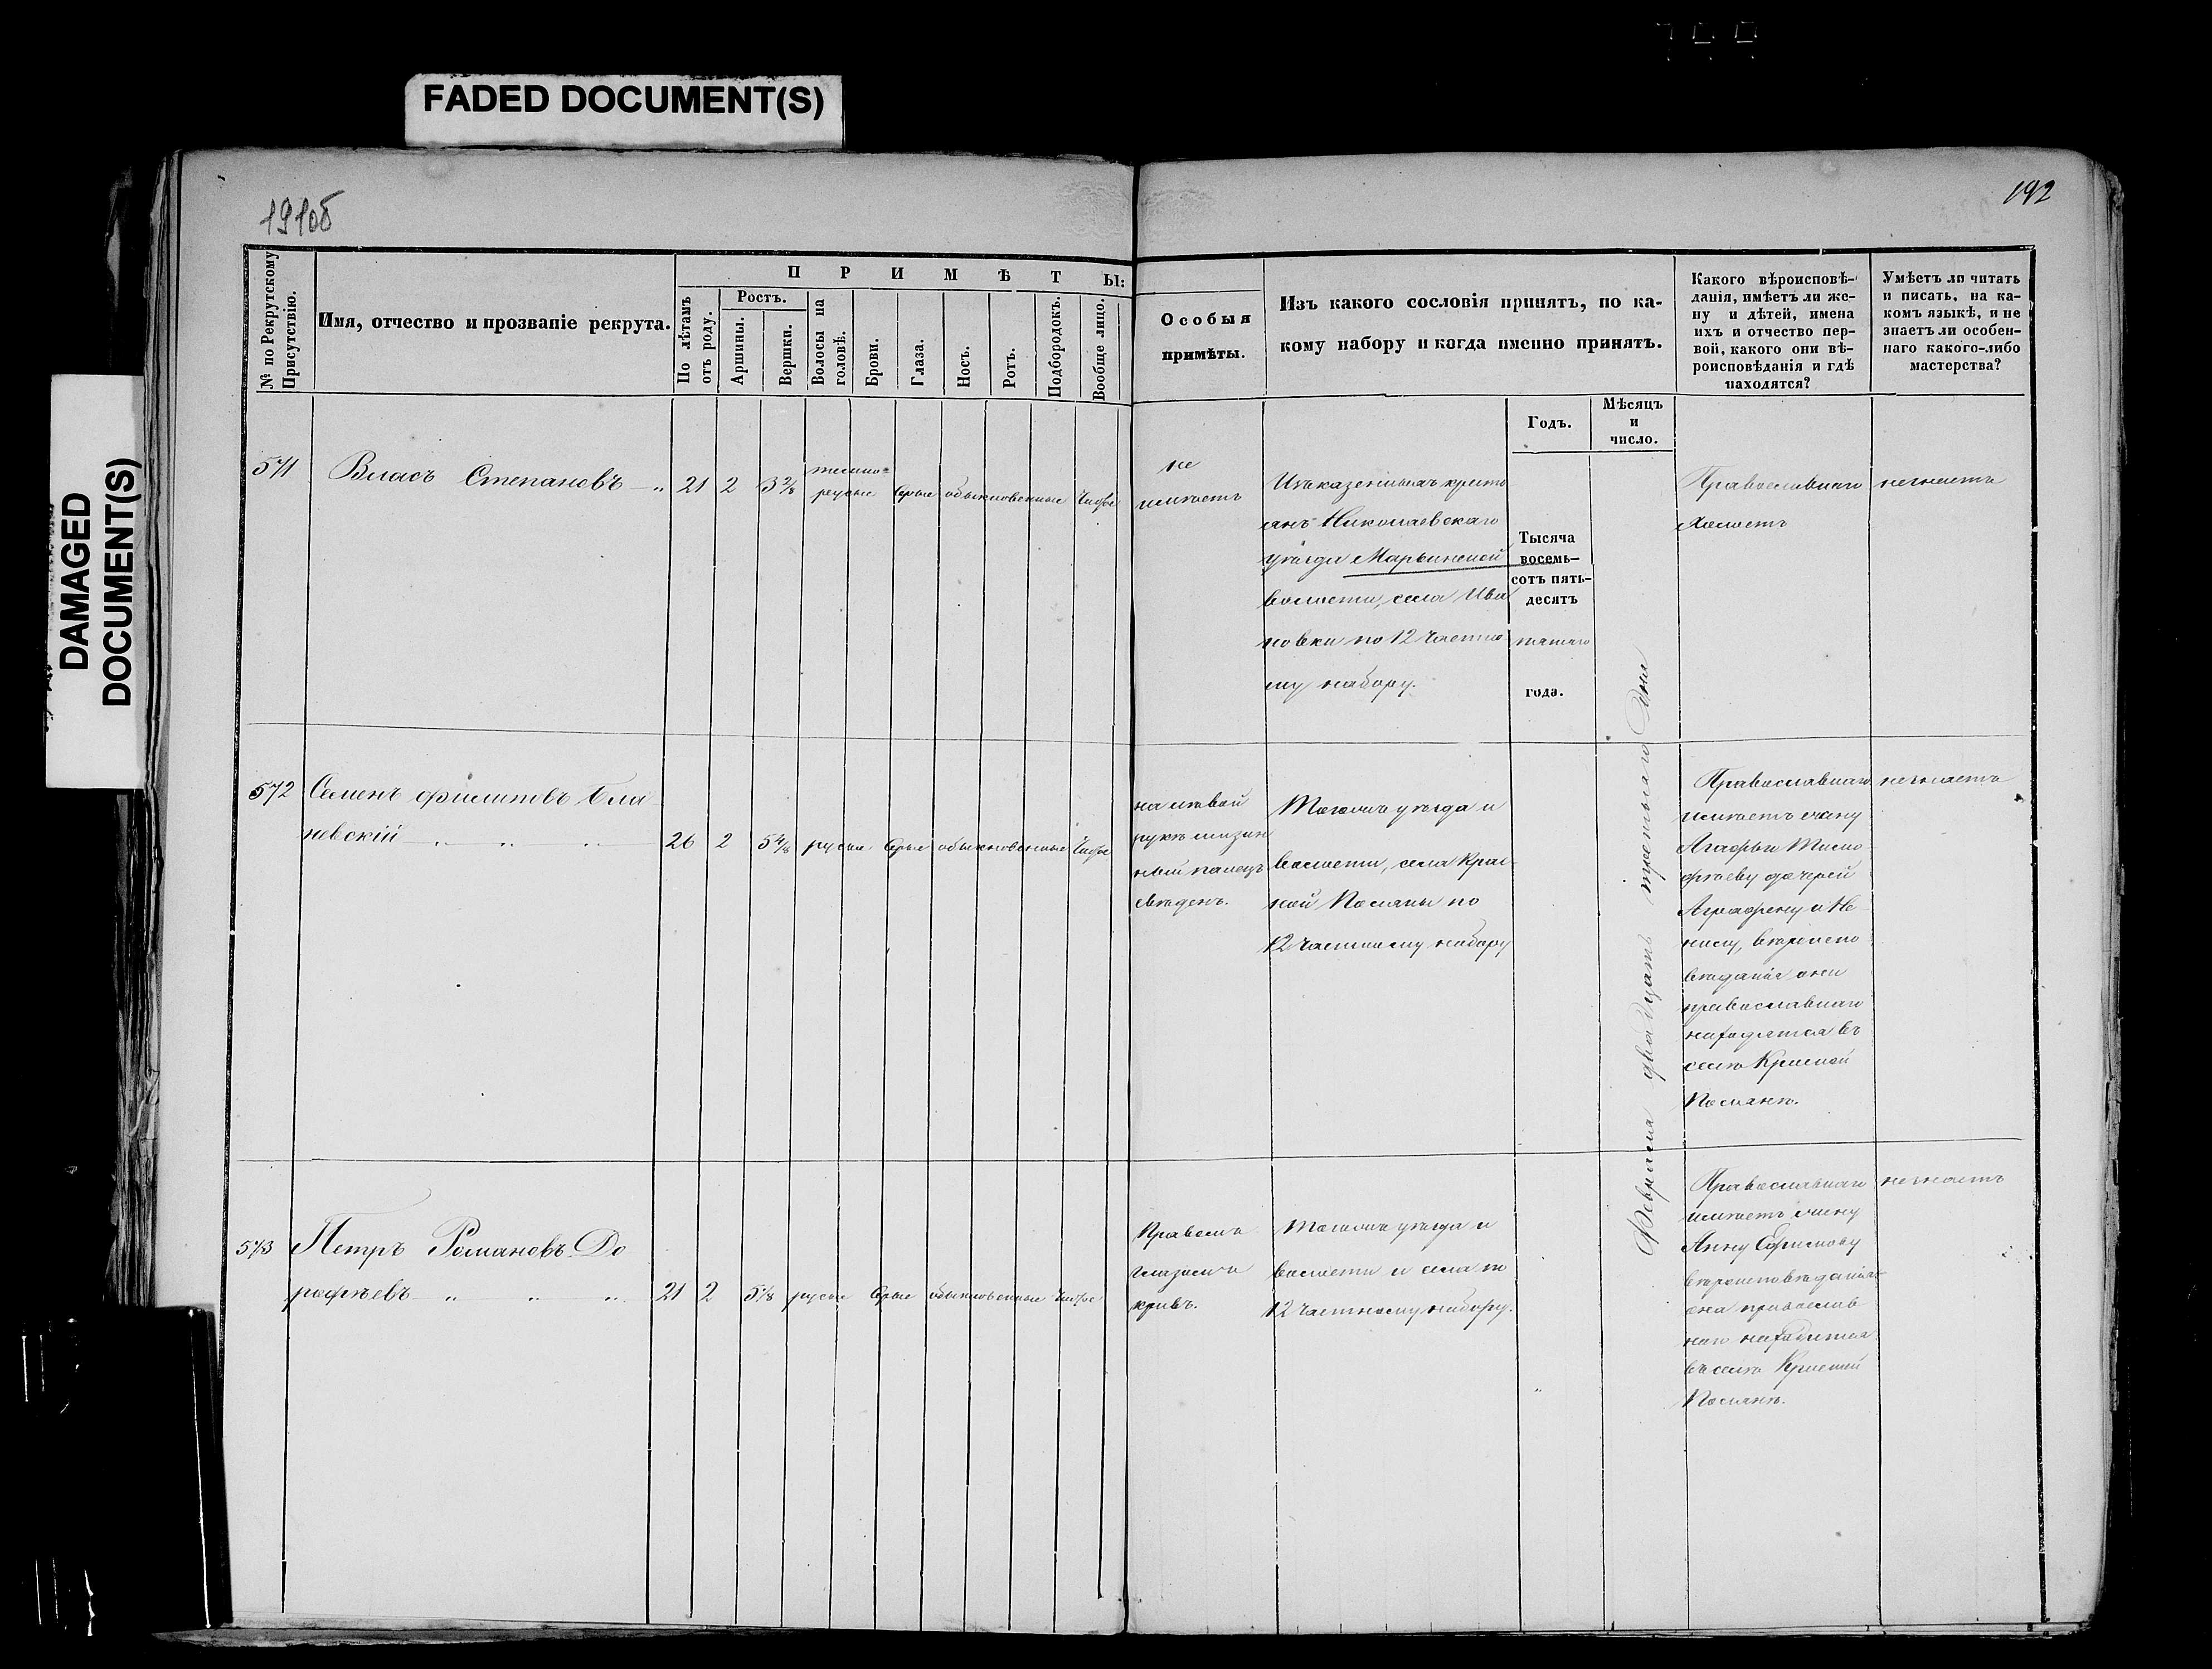 FADED DOCUMENT(S)
DAMAGED
DOCUMENT(S)
191об
192
№ по Рекрутскому
Присутствію.
Имя, отчество и прозваніе рекрута.
ПРИМѢТЫ:
По лѣтамъ
отъ роду.
Ростъ.
Аршины.
Вершки.
Волосы на
головѣ.
Брови.
Глаза.
Носъ.
Ротъ.
Подбородокъ.
Вообще лицо.
Особыя
примѣты.
Изъ какого сословія принятъ, по ка-
кому набору и когда именно принятъ.
Годъ.
Мѣсяцъ
и
число.
Какого вѣроисповѣ-
данія, имѣетъ ли же-
ну и дѣтей, имена
ихъ и отчество пер-
вой, какого они вѣ-
роисповѣданія и гдѣ
находятся?
Умѣетъ ли читать
и писать, на ка-
комъ языкѣ, и не
знаетъ ли особен-
наго какого-либо
мастерства?
571
Власъ Степановъ — „
21
2
3 2/8
темно=
русые
Серые
обыкновенные
Чистое
не
имѣетъ
Изъ казенныхъ кресть
янъ Николаевскаго
уѣзда Марьинской
волости, села Ива
новки по 12 частно
му набору.
Тысяча
восемь-
сотъ пять-
десятъ
пятаго
года.
Февраля двадцать третьяго дня
Православнаго
холостъ
незнаетъ
572
Семенъ Филиповъ
невскій — „ „ „
26
2
5 4/8
русые
Серые
обыкновенные
Чистое
на лѣвой
рукѣ мизин
ный палецъ
сведенъ.
Тогожъ уѣзда и
волости, села Крас-
ной Поляны по
12 частному набору
Православнаго
имѣетъ жену
Агафью Тимо
фѣеву дочерей
Аграфену и
вѣроиспо
вѣданія они
православнаго
находятся въ
селѣ Красной
Полянѣ.
незнаетъ
573
Петръ Романовъ До
рофѣевъ — „ „ „
21
2
русые
Серые
обыкновенные
Чистое
Правымъ
глазомъ
кривъ.
Тогожъ уѣзда и
волости и села по
12 частному набору.
Православнаго
имѣетъ жену
Анну Ефимову
вѣроисповѣданія
она православ
наго находится
въ селѣ Красной
Полянѣ.
незнаетъ